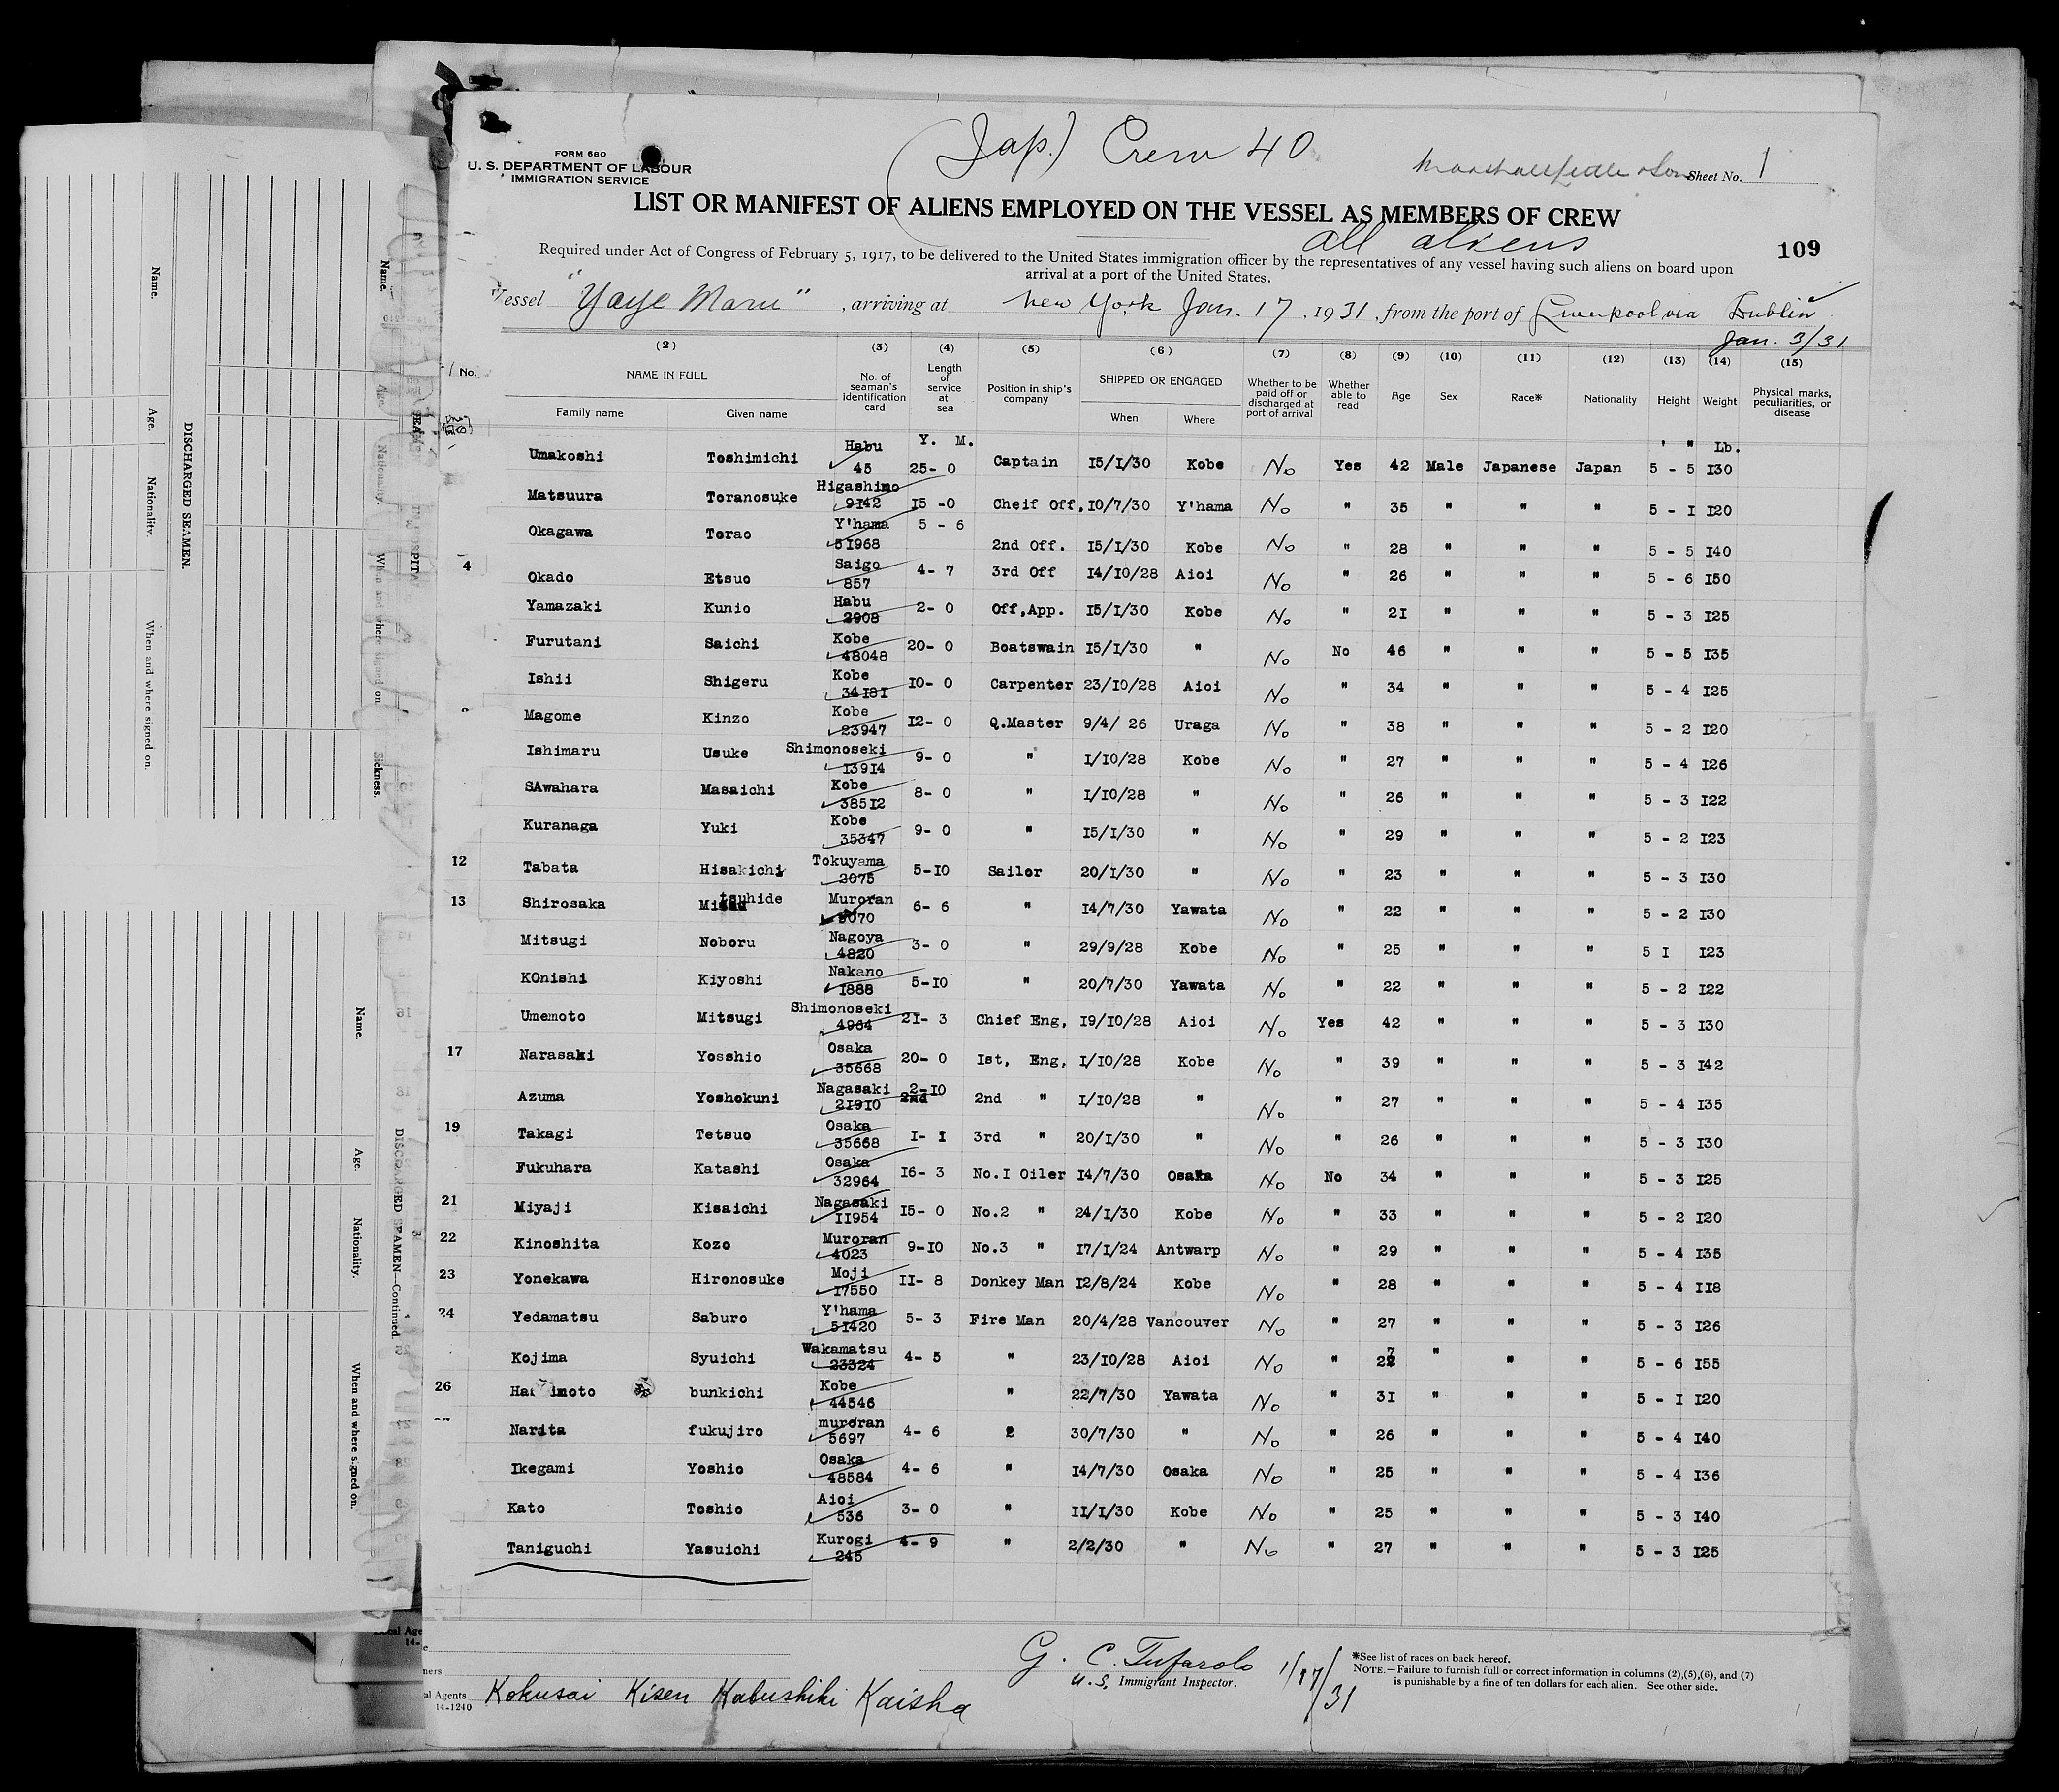 (Jap.) Crew 40
FORM 680
U. S. DEPARTMENT OF LABOUR
IMMIGRATION SERVICE
Sheet No. 1
LIST OR MANIFEST OF ALIENS EMPLOYED ON THE VESSEL AS MEMBERS OF CREW
all aliens
109
Required under Act of Congress of February 5, 1917, to be delivered to the United States immigration officer by the representatives of any vessel having such aliens on board upon
arrival at a port of the United States.
Vessel "Yaye Maru", arriving at New York Jan. 17, 1931, from the port of Liverpool via Dublin
Jan. 3/31
(2) (3) (4) (5) (6) (7) (8) (9) (10) (11) (12) (13) (14) (15)
No. NAME IN FULL Family name Given name No. of seaman's identification card Length of service at sea Position in ship's company SHIPPED OR ENGAGED When Where Whether to be paid off or discharged at port of arrival Whether able to read Age Sex Race* Nationality Height Weight Physical marks, peculiarities, or disease
Y. M. ' " Lb.
Umakoshi Toshimichi Habu 45 25- 0 Captain 15/1/30 Kobe No Yes 42 Male Japanese Japan 5 - 5 130
Matsuura Toranosuke Higashino 9142 15 -0 Cheif Off, 10/7/30 Y'hama No " 35 " " " 5 - 1 120
Okagawa Torao Y'hama 51968 5 - 6 2nd Off. 15/1/30 Kobe No " 28 " " " 5 - 5 140
4 Okado Etsuo Saigo 857 4- 7 3rd Off 14/10/28 Aioi No " 26 " " " 5 - 6 150
Yamazaki Kunio Habu 2908 2- 0 Off,App. 15/1/30 Kobe No " 21 " " " 5 - 3 125
Furutani Saichi Kobe 48048 20- 0 Boatswain 15/1/30 " No No 46 " " " 5 - 5 135
Ishii Shigeru Kobe 34181 10- 0 Carpenter 23/10/28 Aioi No " 34 " " " 5 - 4 125
Magome Kinzo Kobe 23947 12- 0 Q.Master 9/4/ 26 Uraga No " 38 " " " 5 - 2 120
Ishimaru Usuke Shimonoseki 13914 9- 0 " 1/10/28 Kobe No " 27 " " " 5 - 4 126
SAwahara Masaichi Kobe 38512 8- 0 " 1/10/28 " No " 26 " " " 5 - 3 122
Kuranaga Yuki Kobe 35347 9- 0 " 15/1/30 " No " 29 " " " 5 - 2 123
12 Tabata Hisakichi Tokuyama 2075 5-10 Sailor 20/1/30 " No " 23 " " " 5 - 3 130
13 Shirosaka Mitsuhide Muroran 9070 6- 6 " 14/7/30 Yawata No " 22 " " " 5 - 2 130
Mitsugi Noboru Nagoya 4820 3- 0 " 29/9/28 Kobe No " 25 " " " 5 1 123
KOnishi Kiyoshi Nakano 1888 5-10 " 20/7/30 Yawata No " 22 " " " 5 - 2 122
Umemoto Mitsugi Shimonoseki 4964 21- 3 Chief Eng, 19/10/28 Aioi No Yes 42 " " " 5 - 3 130
17 Narasaki Yosshio Osaka 35668 20- 0 1st, Eng, 1/10/28 Kobe No " 39 " " " 5 - 3 142
Azuma Yoshokuni Nagasaki 21910 2-10 2nd " 1/10/28 " No " 27 " " " 5 - 4 135
19 Takagi Tetsuo Osaka 35668 1- 1 3rd " 20/1/30 " No " 26 " " " 5 - 3 130
Fukuhara Katashi Osaka 32964 16- 3 No.1 Oiler 14/7/30 Osaka No No 34 " " " 5 - 3 125
21 Miyaji Kisaichi Nagasaki 11954 15- 0 No.2 " 24/1/30 Kobe No " 33 " " " 5 - 2 120
22 Kinoshita Kozo Muroran 4023 9-10 No.3 " 17/1/24 Antwarp No " 29 " " " 5 - 4 135
23 Yonekawa Hironosuke Moji 17550 11- 8 Donkey Man 12/8/24 Kobe No " 28 " " " 5 - 4 118
24 Yedamatsu Saburo Y'hama 51420 5- 3 Fire Man 20/4/28 Vancouver No " 27 " " " 5 - 3 126
Kojima Syuichi Wakamatsu 23324 4- 5 " 23/10/28 Aioi No " 27 " " " 5 - 6 155
26 bunkichi Kobe 44546 " 22/7/30 Yawata No " 31 " " " 5 - 1 120
Narita fukujiro muroran 5697 4- 6 " 30/7/30 " No " 26 " " " 5 - 4 140
Ikegami Yoshio Osaka 48584 4- 6 " 14/7/30 Osaka No " 25 " " " 5 - 4 136
Kato Toshio Aioi 536 3- 0 " 11/1/30 Kobe No " 25 " " " 5 - 3 140
Taniguchi Yasuichi Kurogi 245 4- 9 " 2/2/30 " No " 27 " " " 5 - 3 125
G. C. Tufarolo 1/17/31
U.S. Immigrant Inspector.
*See list of races on back hereof.
NOTE.—Failure to furnish full or correct information in columns (2),(5),(6), and (7)
is punishable by a fine of ten dollars for each alien. See other side.
Kokusai Kisen Kabushiki Kaisha
14-1240
Name. Age. Nationality. When and where signed on.
DISCHARGED SEAMEN.
Name. Age. Nationality. When and where signed on. Sickness.
Name. Age. Nationality. When and where signed on.
DISCHARGED SEAMEN—Continued.